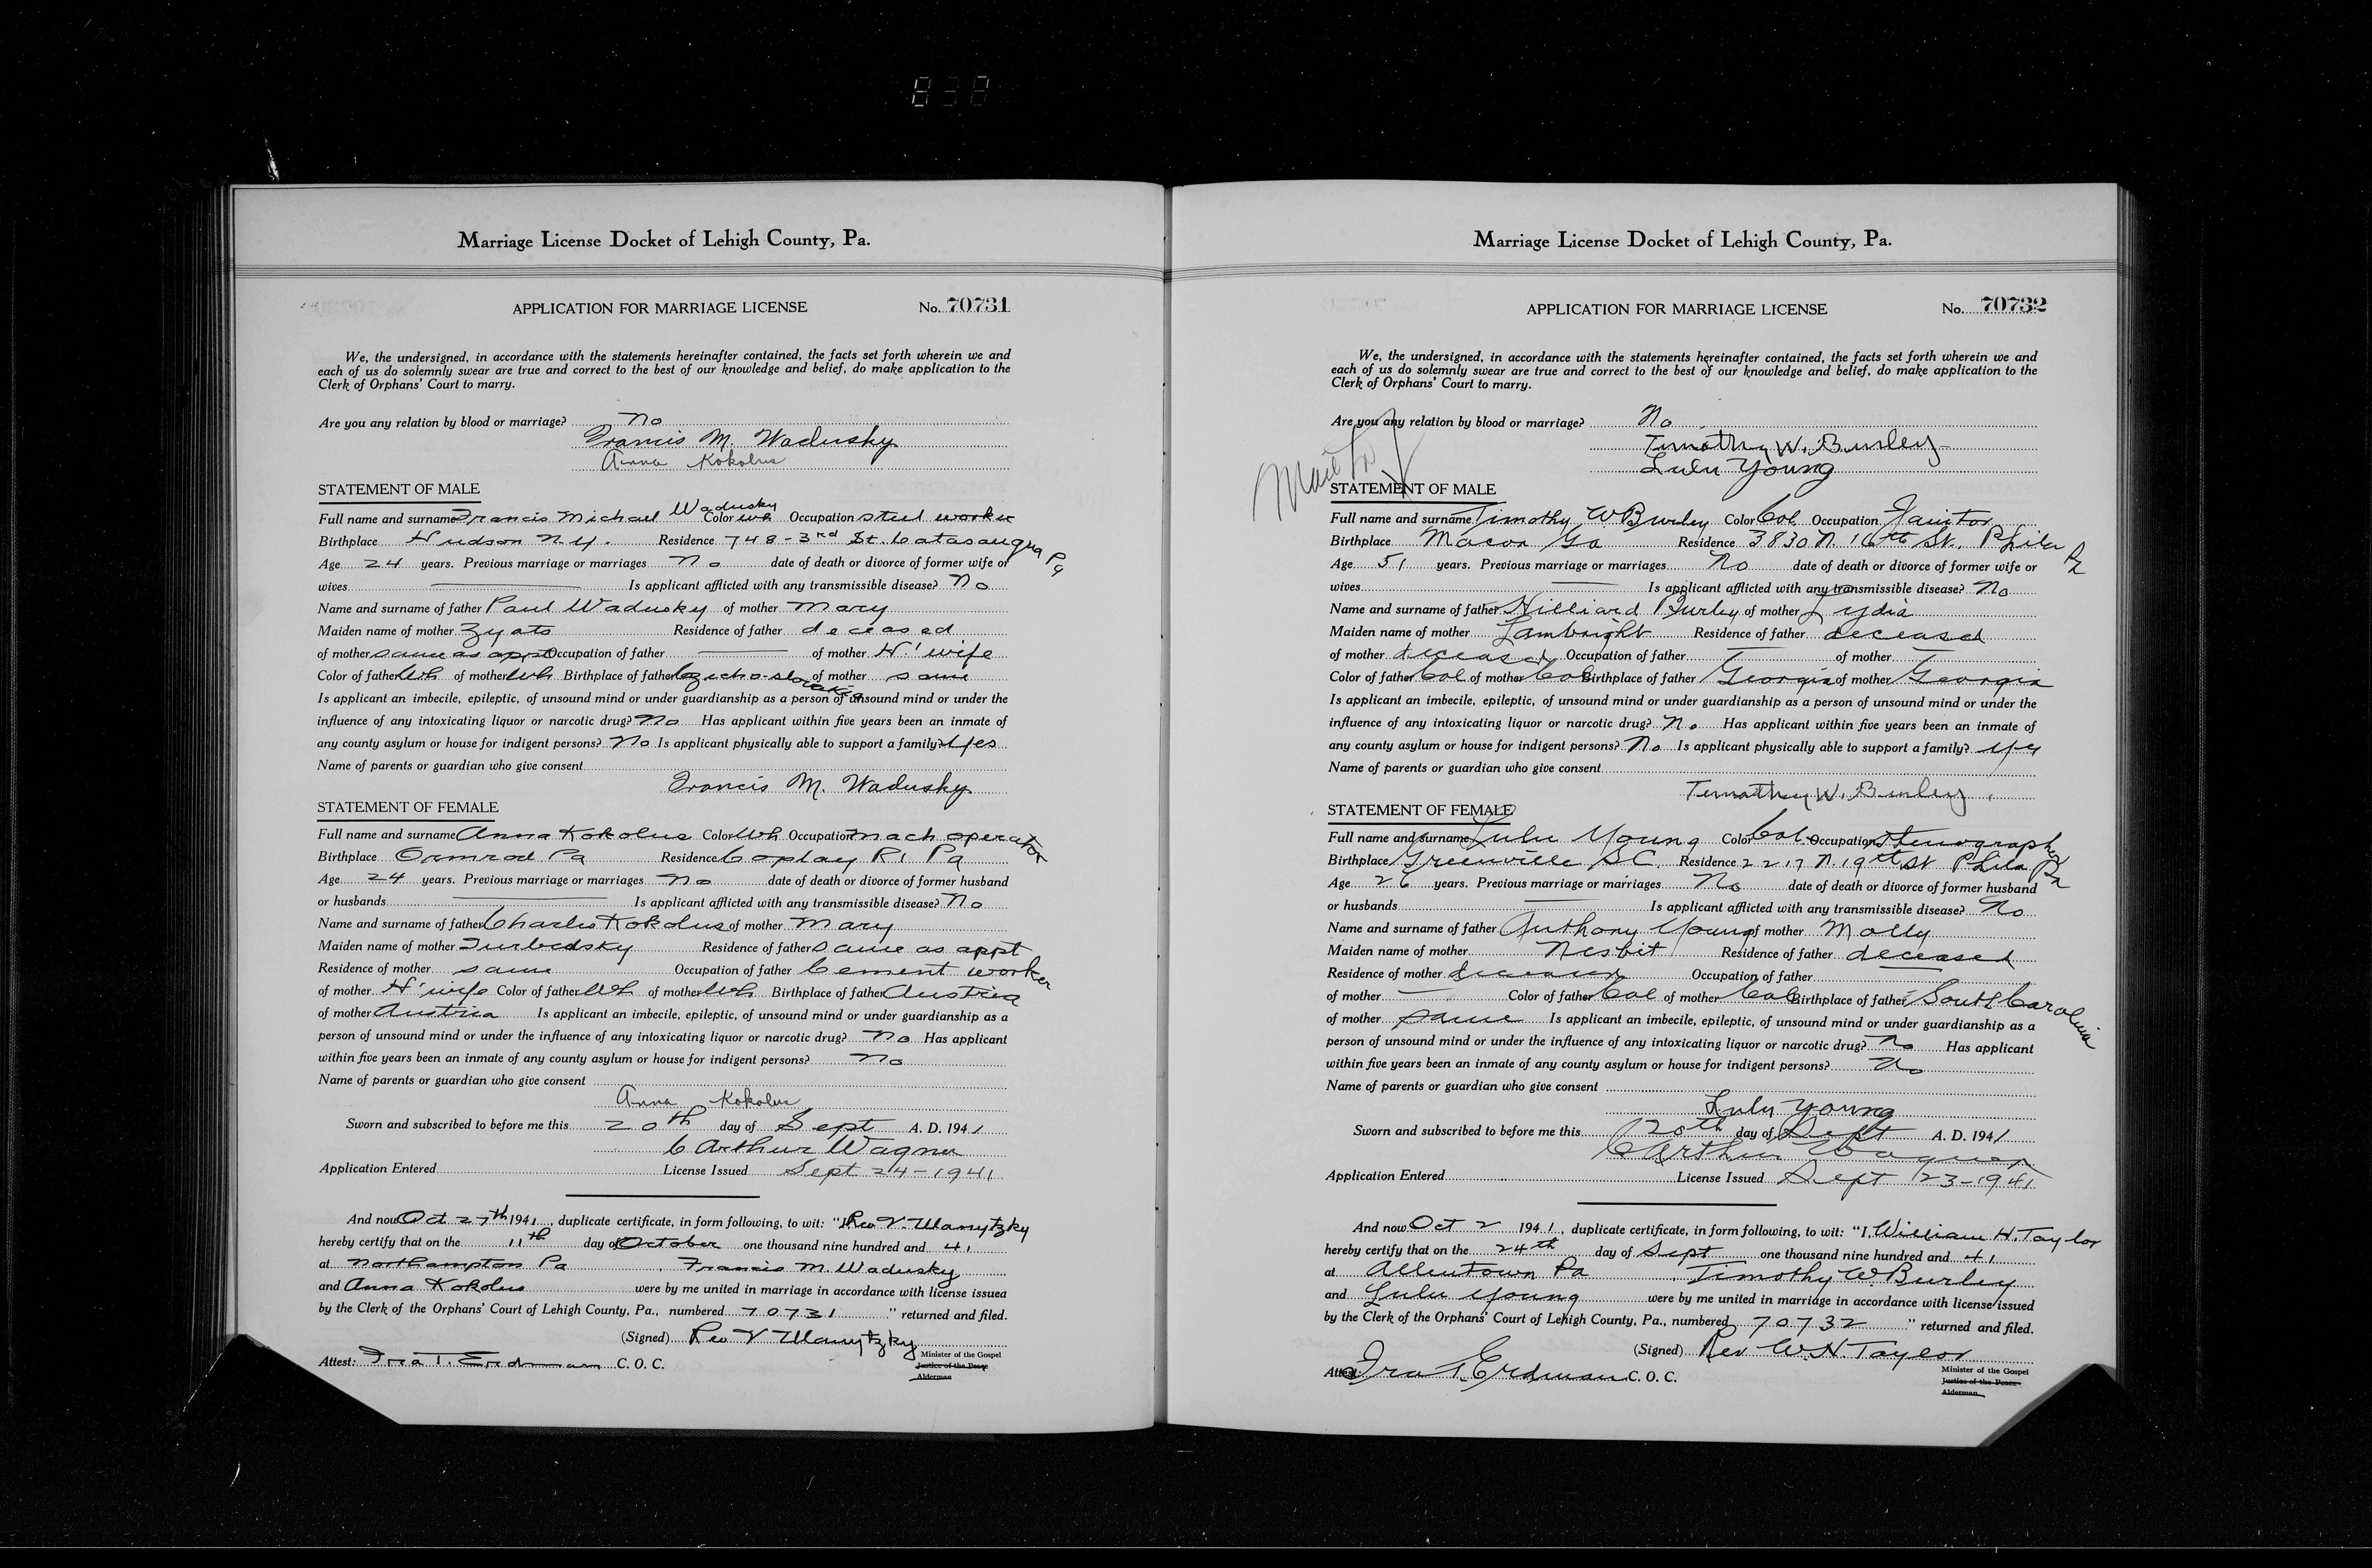 838
Marriage License Docket of Lehigh County, Pa.
APPLICATION FOR MARRIAGE LICENSE No. 70731
We, the undersigned, in accordance with the statements hereinafter contained, the facts set forth wherein we and
each of us do solemnly swear are true and correct to the best of our knowledge and belief, do make application to the
Clerk of Orphans' Court to marry.
Are you any relation by blood or marriage? No
Francis M. Wadusky
Anna Kokolus
STATEMENT OF MALE
Full name and surname Francis Michael Wadusky Color Wh Occupation steel worker
Birthplace Hudson N.Y. Residence 748-3rd St. Catasauqua Pa
Age 24 years. Previous marriage or marriages No date of death or divorce of former wife or
wives Is applicant afflicted with any transmissible disease? No
Name and surname of father Paul Wadusky of mother Mary
Maiden name of mother Zyats Residence of father deceased
of mother same as appt Occupation of father of mother H'wife
Color of father Wh of mother Wh Birthplace of father Czecho-slovakia of mother same
Is applicant an imbecile, epileptic, of unsound mind or under guardianship as a person of unsound mind or under the
influence of any intoxicating liquor or narcotic drug? No Has applicant within five years been an inmate of
any county asylum or house for indigent persons? No Is applicant physically able to support a family? Yes
Name of parents or guardian who give consent
Francis M. Wadusky
STATEMENT OF FEMALE
Full name and surname Anna Kokolus Color Wh Occupation mach operator
Birthplace Ormrod Pa Residence Coplay R1 Pa
Age 24 years. Previous marriage or marriages No date of death or divorce of former husband
or husbands Is applicant afflicted with any transmissible disease? No
Name and surname of father Charles Kokolus of mother Mary
Maiden name of mother Residence of father same as appt
Residence of mother same Occupation of father Cement worker
of mother H'wife Color of father Wh of mother Wh Birthplace of father Austria
of mother Austria Is applicant an imbecile, epileptic, of unsound mind or under guardianship as a
person of unsound mind or under the influence of any intoxicating liquor or narcotic drug? No Has applicant
within five years been an inmate of any county asylum or house for indigent persons? No
Name of parents or guardian who give consent
Anna Kokolus
Sworn and subscribed to before me this 20th day of Sept A. D. 1941
C Arthur Wagner
Application Entered License Issued Sept 24-1941
And now Oct 27th 1941, duplicate certificate, in form following, to wit: "I, Rev V.
hereby certify that on the 11th day of October one thousand nine hundred and 41
at Northampton Pa, Francis M. Wadusky
and Anna Kokolus were by me united in marriage in accordance with license issued
by the Clerk of the Orphans' Court of Lehigh County, Pa., numbered 70731 " returned and filed.
(Signed) Rev V
Minister of the Gospel
Justice of the Peace
Alderman
Attest: Ira T. Erdman C. O. C.
Marriage License Docket of Lehigh County, Pa.
APPLICATION FOR MARRIAGE LICENSE No. 70732
We, the undersigned, in accordance with the statements hereinafter contained, the facts set forth wherein we and
each of us do solemnly swear are true and correct to the best of our knowledge and belief, do make application to the
Clerk of Orphans' Court to marry.
Are you any relation by blood or marriage? No
Timothy W. Burley
Lulu Young
Mail to
STATEMENT OF MALE
Full name and surname Timothy W Burley Color Col Occupation Janitor
Birthplace Macon Ga Residence 3830 N. 16th St., Phila Pa
Age 51 years. Previous marriage or marriages No date of death or divorce of former wife or
wives Is applicant afflicted with any transmissible disease? No
Name and surname of father Hilliard Burley of mother Lydia
Maiden name of mother Lambright Residence of father deceased
of mother deceased Occupation of father of mother
Color of father Col of mother Col Birthplace of father Georgia of mother Georgia
Is applicant an imbecile, epileptic, of unsound mind or under guardianship as a person of unsound mind or under the
influence of any intoxicating liquor or narcotic drug? No Has applicant within five years been an inmate of
any county asylum or house for indigent persons? No Is applicant physically able to support a family? yes
Name of parents or guardian who give consent
Timothy W. Burley
STATEMENT OF FEMALE
Full name and surname Lulu Young Color Col Occupation Stenographer
Birthplace Greenville SC. Residence 2217 N. 19th St Phila Pa
Age 26 years. Previous marriage or marriages No date of death or divorce of former husband
or husbands Is applicant afflicted with any transmissible disease? No
Name and surname of father Anthony Young of mother Molly
Maiden name of mother Nesbit Residence of father deceased
Residence of mother deceased Occupation of father
of mother Color of father Col of mother Col Birthplace of father South Carolina
of mother same Is applicant an imbecile, epileptic, of unsound mind or under guardianship as a
person of unsound mind or under the influence of any intoxicating liquor or narcotic drug? No Has applicant
within five years been an inmate of any county asylum or house for indigent persons? No
Name of parents or guardian who give consent
Lulu Young
Sworn and subscribed to before me this 20th day of Sept A. D. 1941
C Arthur Wagner
Application Entered License Issued Sept 23-1941
And now Oct 2 1941, duplicate certificate, in form following, to wit: "I, William H. Taylor
hereby certify that on the 24th day of Sept one thousand nine hundred and 41
at Allentown Pa, Timothy W. Burley
and Lulu Young were by me united in marriage in accordance with license issued
by the Clerk of the Orphans' Court of Lehigh County, Pa., numbered 70732 " returned and filed.
(Signed) Rev W. H. Taylor
Minister of the Gospel
Justice of the Peace
Alderman
Attest: Ira T. Erdman C. O. C.